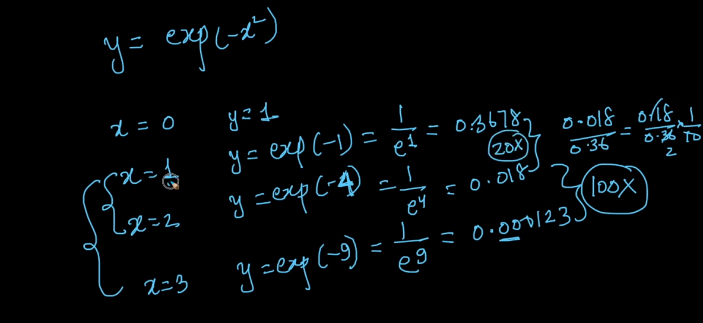 y = exp(-x²)
x = 0 y = 1
x = 1 y = exp(-1) = 1/e¹ = 0.3678 20X 0.018/0.36 = 0.18/0.36 × 1/10
2
x = 2 y = exp(-4) = 1/e⁴ = 0.018 100X
x = 3 y = exp(-9) = 1/e⁹ = 0.000123